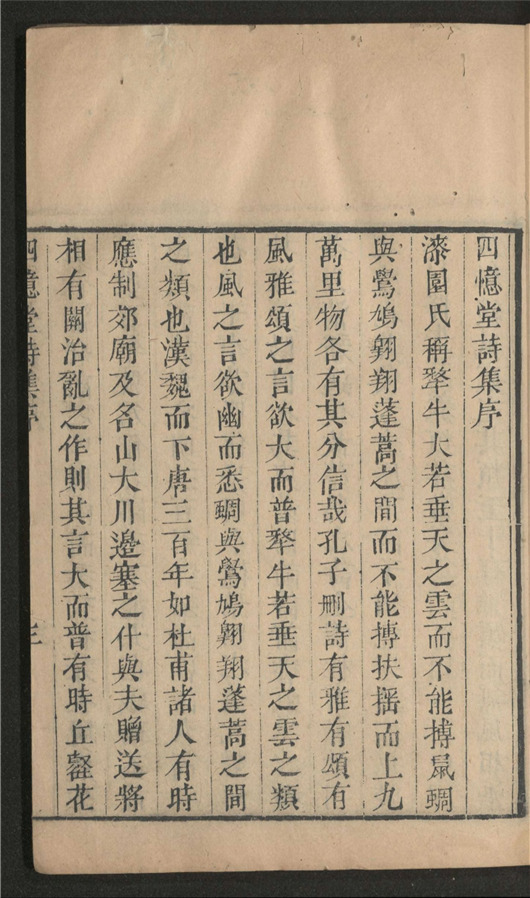 四憶堂詩集序
漆園氏稱犂牛大若垂天之雲而不能搏鼠蜩
與鷽鳩翺翔蓬蒿之間而不能摶扶搖而上九
萬里物各有其分信哉孔子刪詩有雅有頌有
風雅頌之言欲大而普犂牛若垂天之雲之類
也風之言欲幽而悉蜩與鷽鳩翺翔蓬蒿之間
之類也漢魏而下唐三百年如杜甫諸人有時
應制郊廟及名山大川邊塞之什與夫贈送將
相有關治亂之作則其言大而普有時丘壑花
四憶堂詩集序
三